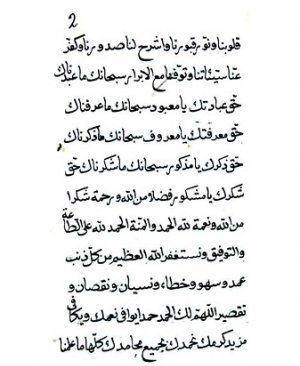 2
قلوبنا ونور قبورنا واشرح لنا صدورنا وكفر
عنا سيئاتنا وتوفنا مع الابرار سبحانك ما عبدناك
حق عبادتك يا معبود سبحانك ما عرفناك
حق معرفتك يا معروف سبحانك ما ذكرناك
حق ذكرك يا مذكور سبحانك ما شكرناك حق
شكرك يا مشكور فضلا من الله ورحمة شكرا
من الله ونعمة لله الحمد والمنة الحمد لله على الطاعة
والتوفيق ونستغفر الله العظيم من كل ذنب
عمد وسهو وخطاء ونسيان ونقصان و
تقصير اللهم لك الحمد حمدا يوافى نعمك ويكافى
مزيد كرمك نحمدك بجميع محامدك كلها ما علمنا